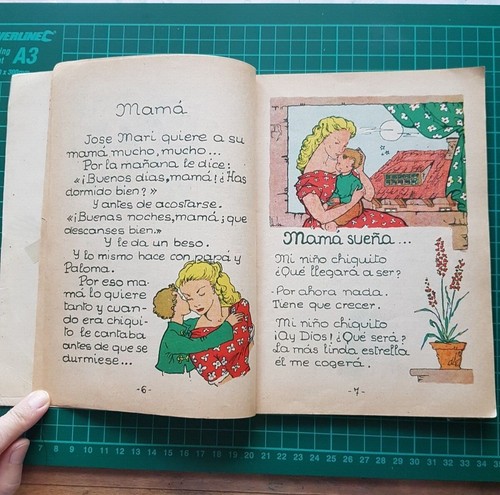 Mamá
Jose Mari quiere a su
mamá mucho, mucho...
Por la mañana le dice:
«¡Buenos dias, mamá! ¿Has
dormido bien?»
Y antes de acostarse.
«¡Buenas noches, mamá; que
descanses bien.»
Y le da un beso.
Y lo mismo hace con papá y
Paloma.
Por eso ma-
má lo quiere
tanto y cuan-
do era chiqui-
to le cantaba
antes de que se
durmiese...
-6-
Mamá sueña...
Mi niño chiquito
¿Qué llegará a ser?
-Por ahora nada.
Tiene que crecer.
Mi niño chiquito
¡Ay Dios! ¿Qué será?
La más linda estrella
él me cogerá.
-7-
A3
5 6 7 8 9 10 11 12 13 14 15 16 17 18 19 20 21 22 23 24 25 26 27 28 29 30 31 32 33 34 35 36 37 38